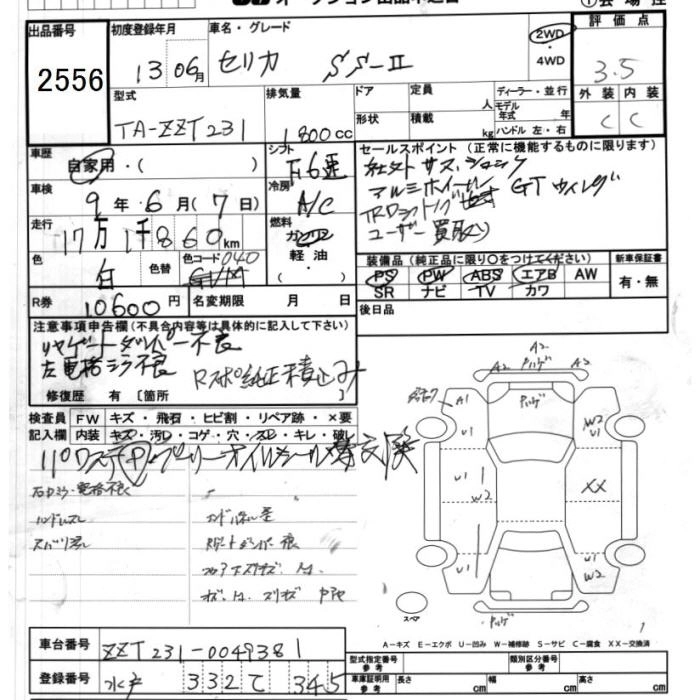 オークション出品申込書
①会場控
出品番号
2556
初度登録年月
13 06月
車名・グレード
セリカ SS-II
2WD
・
4WD
評価点
3.5
外装 内装
C C
型式
TA-ZZT231
排気量
1800cc
ドア
形状
定員 人
積載 kg
ディーラー・並行
モデル年式 年
ハンドル 左・右
車歴
自家用・( )
シフト
F6速
セールスポイント (正常に機能するものに限ります)
社外サス・ショック
アルミホイール GTウィング
ユーザー買取り
車検
9年 6月 ( 7日)
冷房
A/C
走行
17万1千860km
燃料
ガソリン
軽油・
( )
色
白
色替
色コード 040
装備品 (純正品に限り○をつけてください)
新車保証書
PS PW ABS エアB AW
SR ナビ TV カワ
有・無
R券
10600円
名変期限 月 日
後日品
注意事項申告欄(不具合内容等は具体的に記入して下さい)
リヤゲートダンパー不良
左電格ミラー不良 Rスポ純正積込み
修復歴 有 [箇所 ]
検査員記入欄
FW キズ・飛石・ヒビ割・リペア跡・×要
内装 キズ・汚レ・コゲ・穴・スレ・キレ・破レ
オイルシール 交換
ハンドルスレ
A2
A2 A2
A1
U1
W2
U1
U1
W2
XX
U1
U1
W2
スペア
A-キズ E-エクボ U-凹み W-補修跡 S-サビ C-腐食 XX-交換済
車台番号
ZZT231-0049381
登録番号
水戸 332 て 345
型式指定番号
参考
類別区分番号
参考
車庫証明用
参考
長さ cm
幅 cm
高さ cm